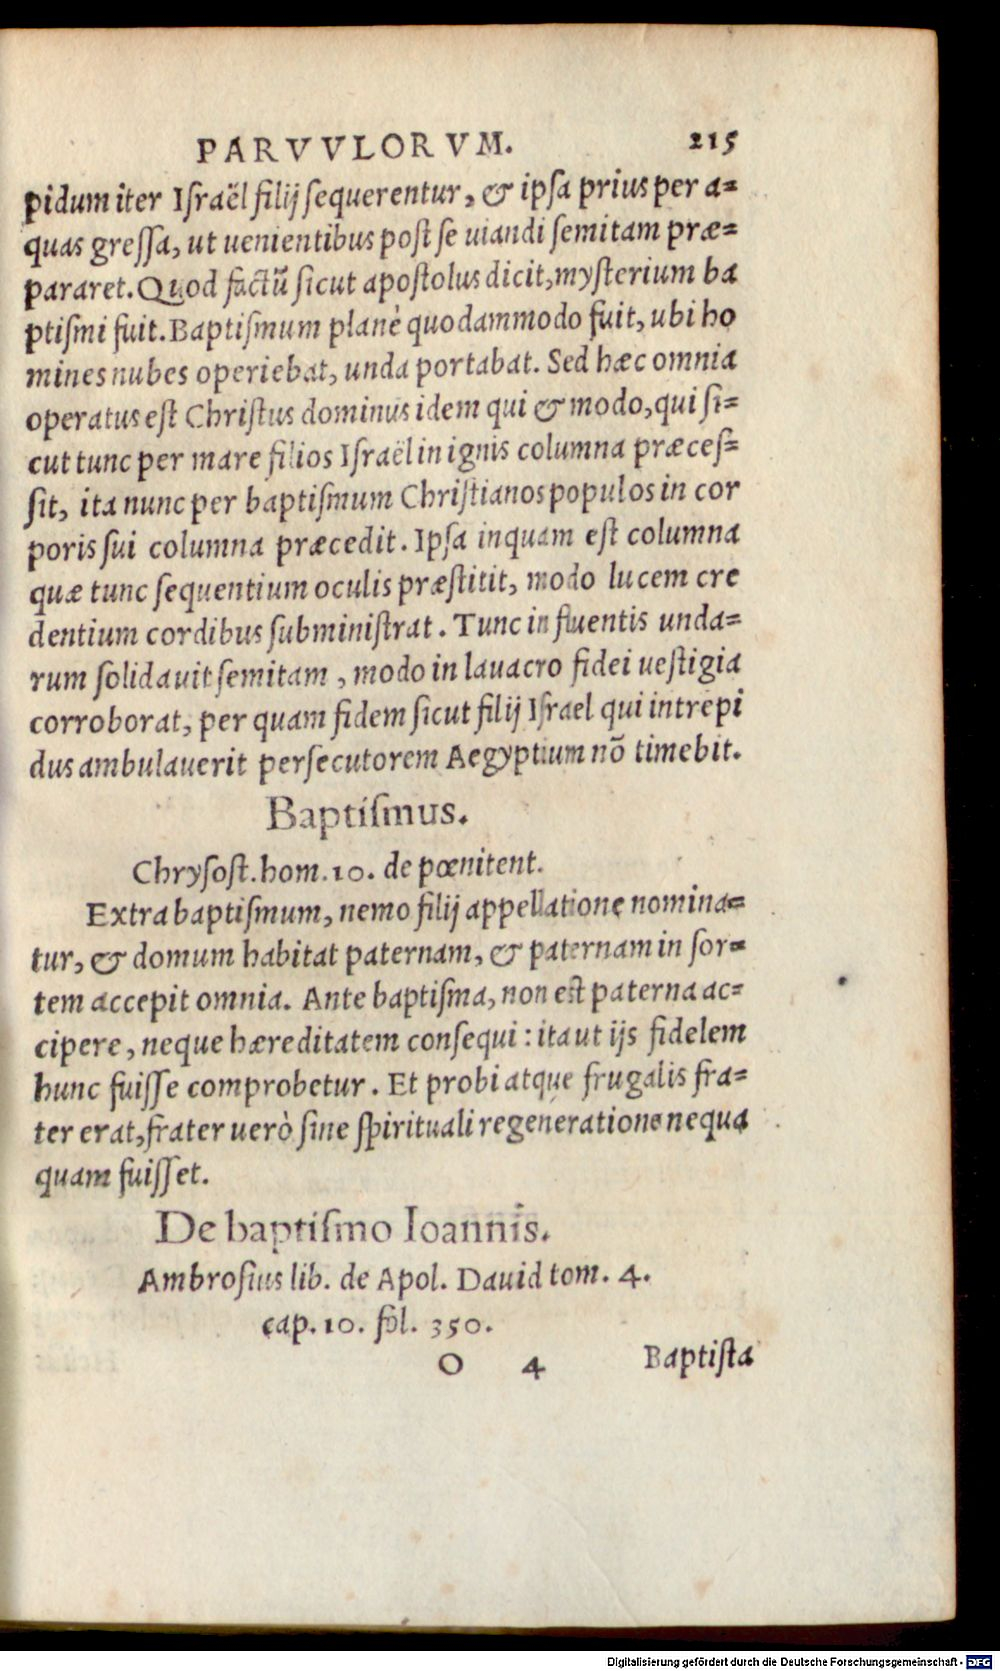 PARVVLORVM. 215
pidum iter Iſraël filij ſequerentur, & ipſa prius per a=
quas greſſa, ut uenientibus poſt ſe uiandi ſemitam præ=
pararet. Quod factũ ſicut apoſtolus dicit, myſterium ba
ptiſmi fuit. Baptiſmum planè quodammodo fuit, ubi ho
mines nubes operiebat, unda portabat. Sed hæc omnia
operatus eſt Chriſtus dominus idem qui & modo, qui ſi=
cut tunc per mare filios Iſraël in ignis columna præceſ=
ſit, ita nunc per baptiſmum Chriſtianos populos in cor
poris ſui columna præcedit. Ipſa inquam eſt columna
quæ tunc ſequentium oculis præſtitit, modo lucem cre
dentium cordibus ſubminiſtrat. Tunc in fluentis unda=
rum ſolidauit ſemitam, modo in lauacro fidei ueſtigia
corroborat, per quam fidem ſicut filij Iſrael qui intrepi
dus ambulauerit perſecutorem Aegyptium nõ timebit.
Baptiſmus.
Chryſoſt. hom. 10. de pœnitent.
Extra baptiſmum, nemo filij appellatione nomina=
tur, & domum habitat paternam, & paternam in ſor=
tem accepit omnia. Ante baptiſma, non eſt paterna ac=
cipere, neque hæreditatem conſequi: ita ut ijs fidelem
hunc fuiſſe comprobetur. Et probi atque frugalis fra=
ter erat, frater uerò ſine ſpirituali regeneratione nequa
quam fuiſſet.
De baptiſmo Ioannis.
Ambroſius lib. de Apol. Dauid tom. 4.
cap. 10. fol. 350.
O 4 Baptiſta
Digitalisierung gefördert durch die Deutsche Forschungsgemeinschaft - DFG